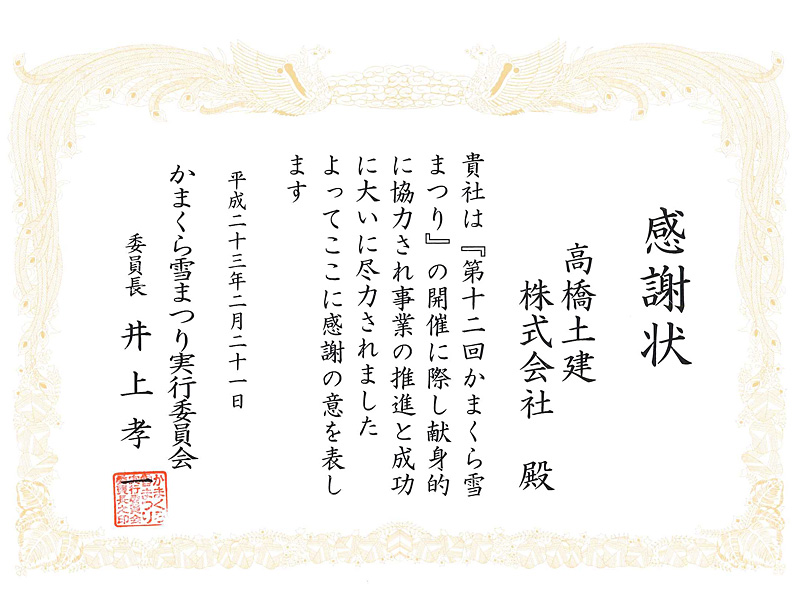 感謝状
高橋土建
株式会社 殿
貴社は『第十二回かまくら雪
まつり』の開催に際し献身的
に協力され事業の推進と成功
に大いに尽力されました
よってここに感謝の意を表し
ます
平成二十三年二月二十一日
かまくら雪まつり実行委員会
委員長 井上孝一